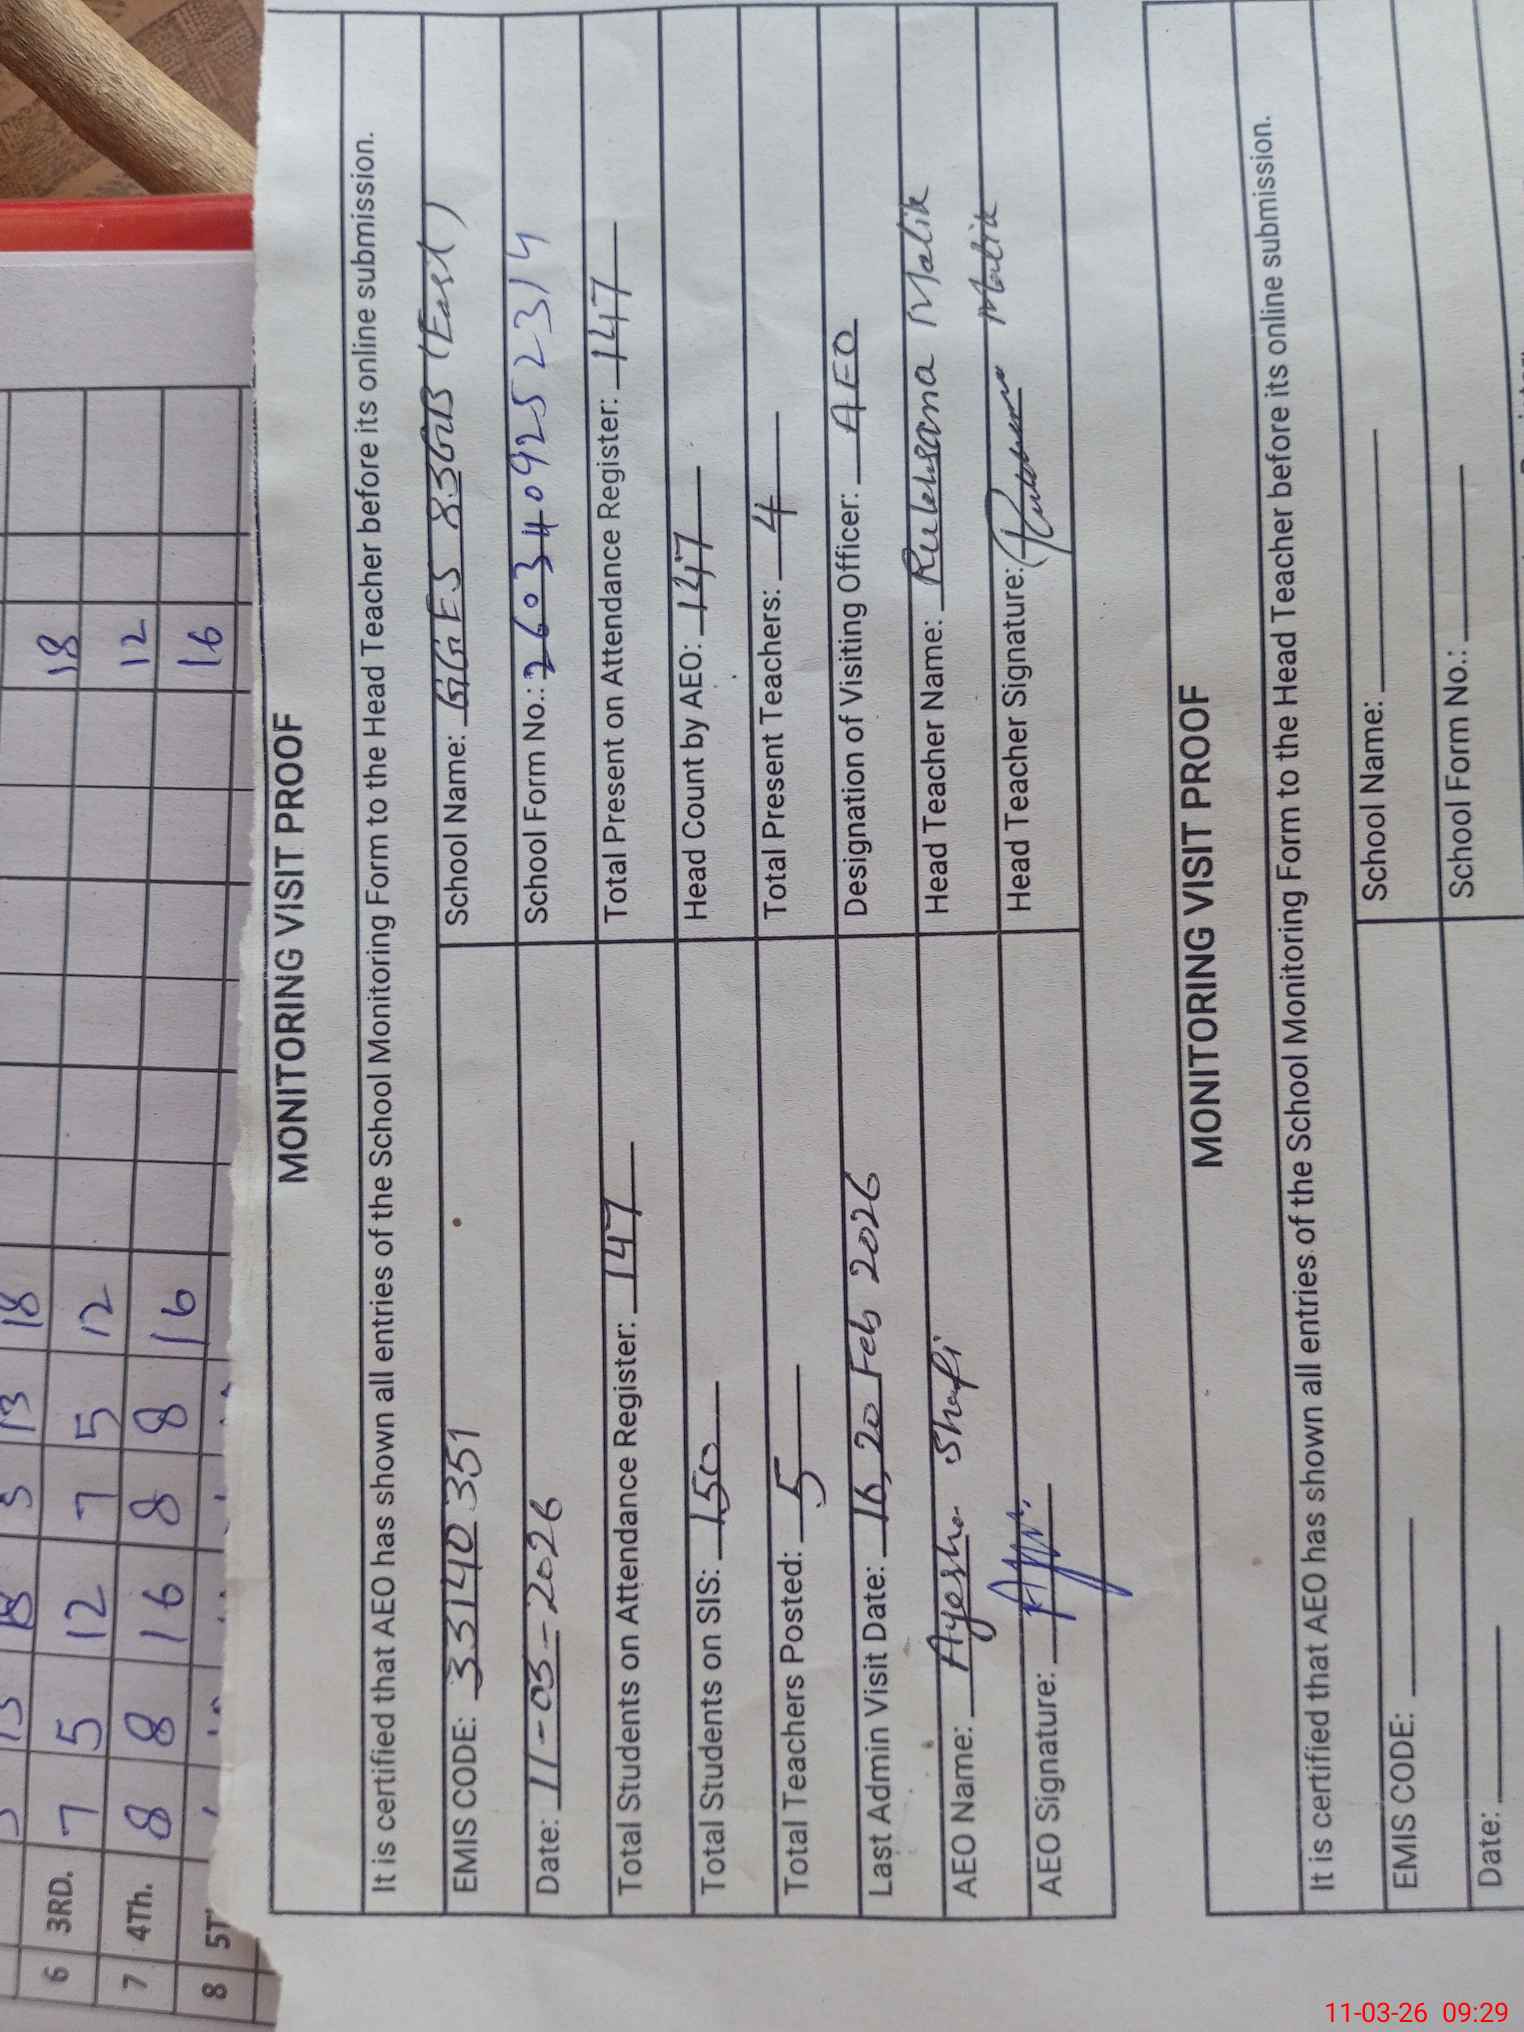 6 3RD. 7 5 12 7 5 12 18
7 4Th. 8 8 16 8 8 16 12
8 5T 16
MONITORING VISIT PROOF
It is certified that AEO has shown all entries of the School Monitoring Form to the Head Teacher before its online submission.
EMIS CODE: 33140351 School Name: GGES 83GB (East)
Date: 11-03-2026 School Form No.: 2603409252314
Total Students on Attendance Register: 147 Total Present on Attendance Register: 147
Total Students on SIS: 150 Head Count by AEO: 147
Total Teachers Posted: 5 Total Present Teachers: 4
Last Admin Visit Date: 16, 20 Feb 2026 Designation of Visiting Officer: AEO
AEO Name: Ayesha Shafi Head Teacher Name: Rukhsana Malik
AEO Signature: Head Teacher Signature: Malik
MONITORING VISIT PROOF
It is certified that AEO has shown all entries of the School Monitoring Form to the Head Teacher before its online submission.
EMIS CODE: School Name:
Date: School Form No.:
11-03-26 09:29